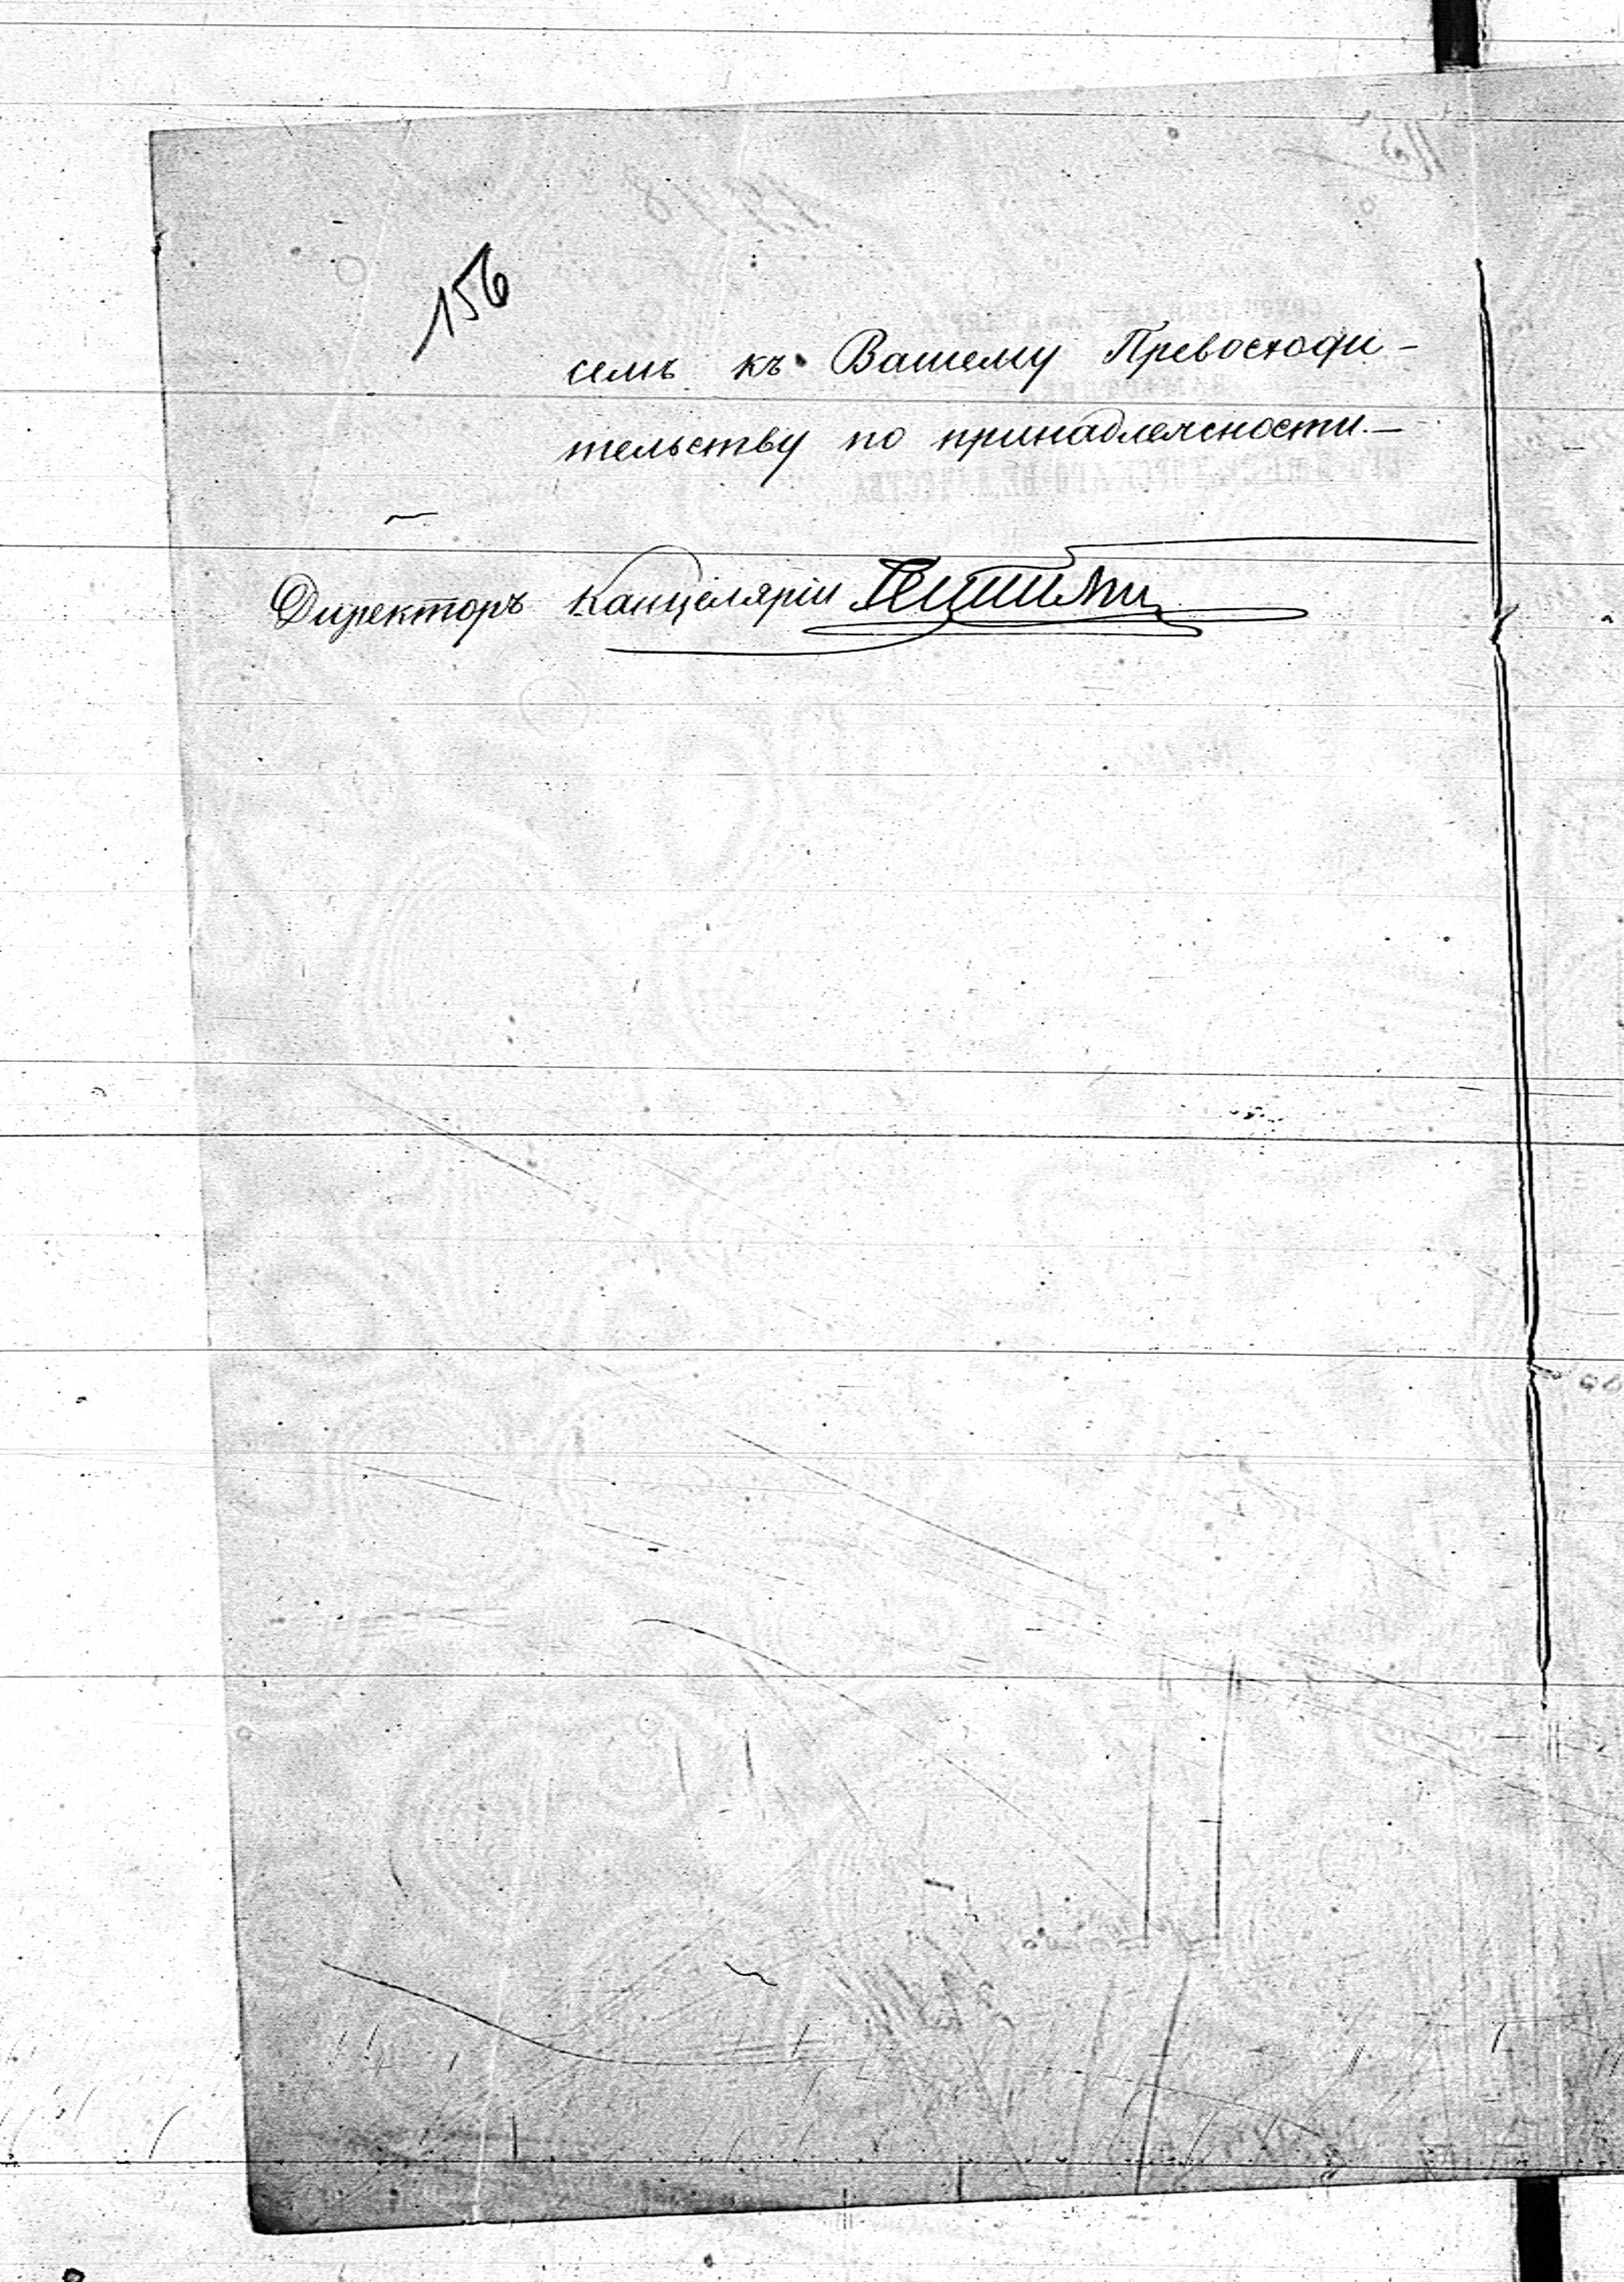 156
семъ къ Вашему Превосходи-
тельству по принадлежности.—
Директоръ Канцеляріи